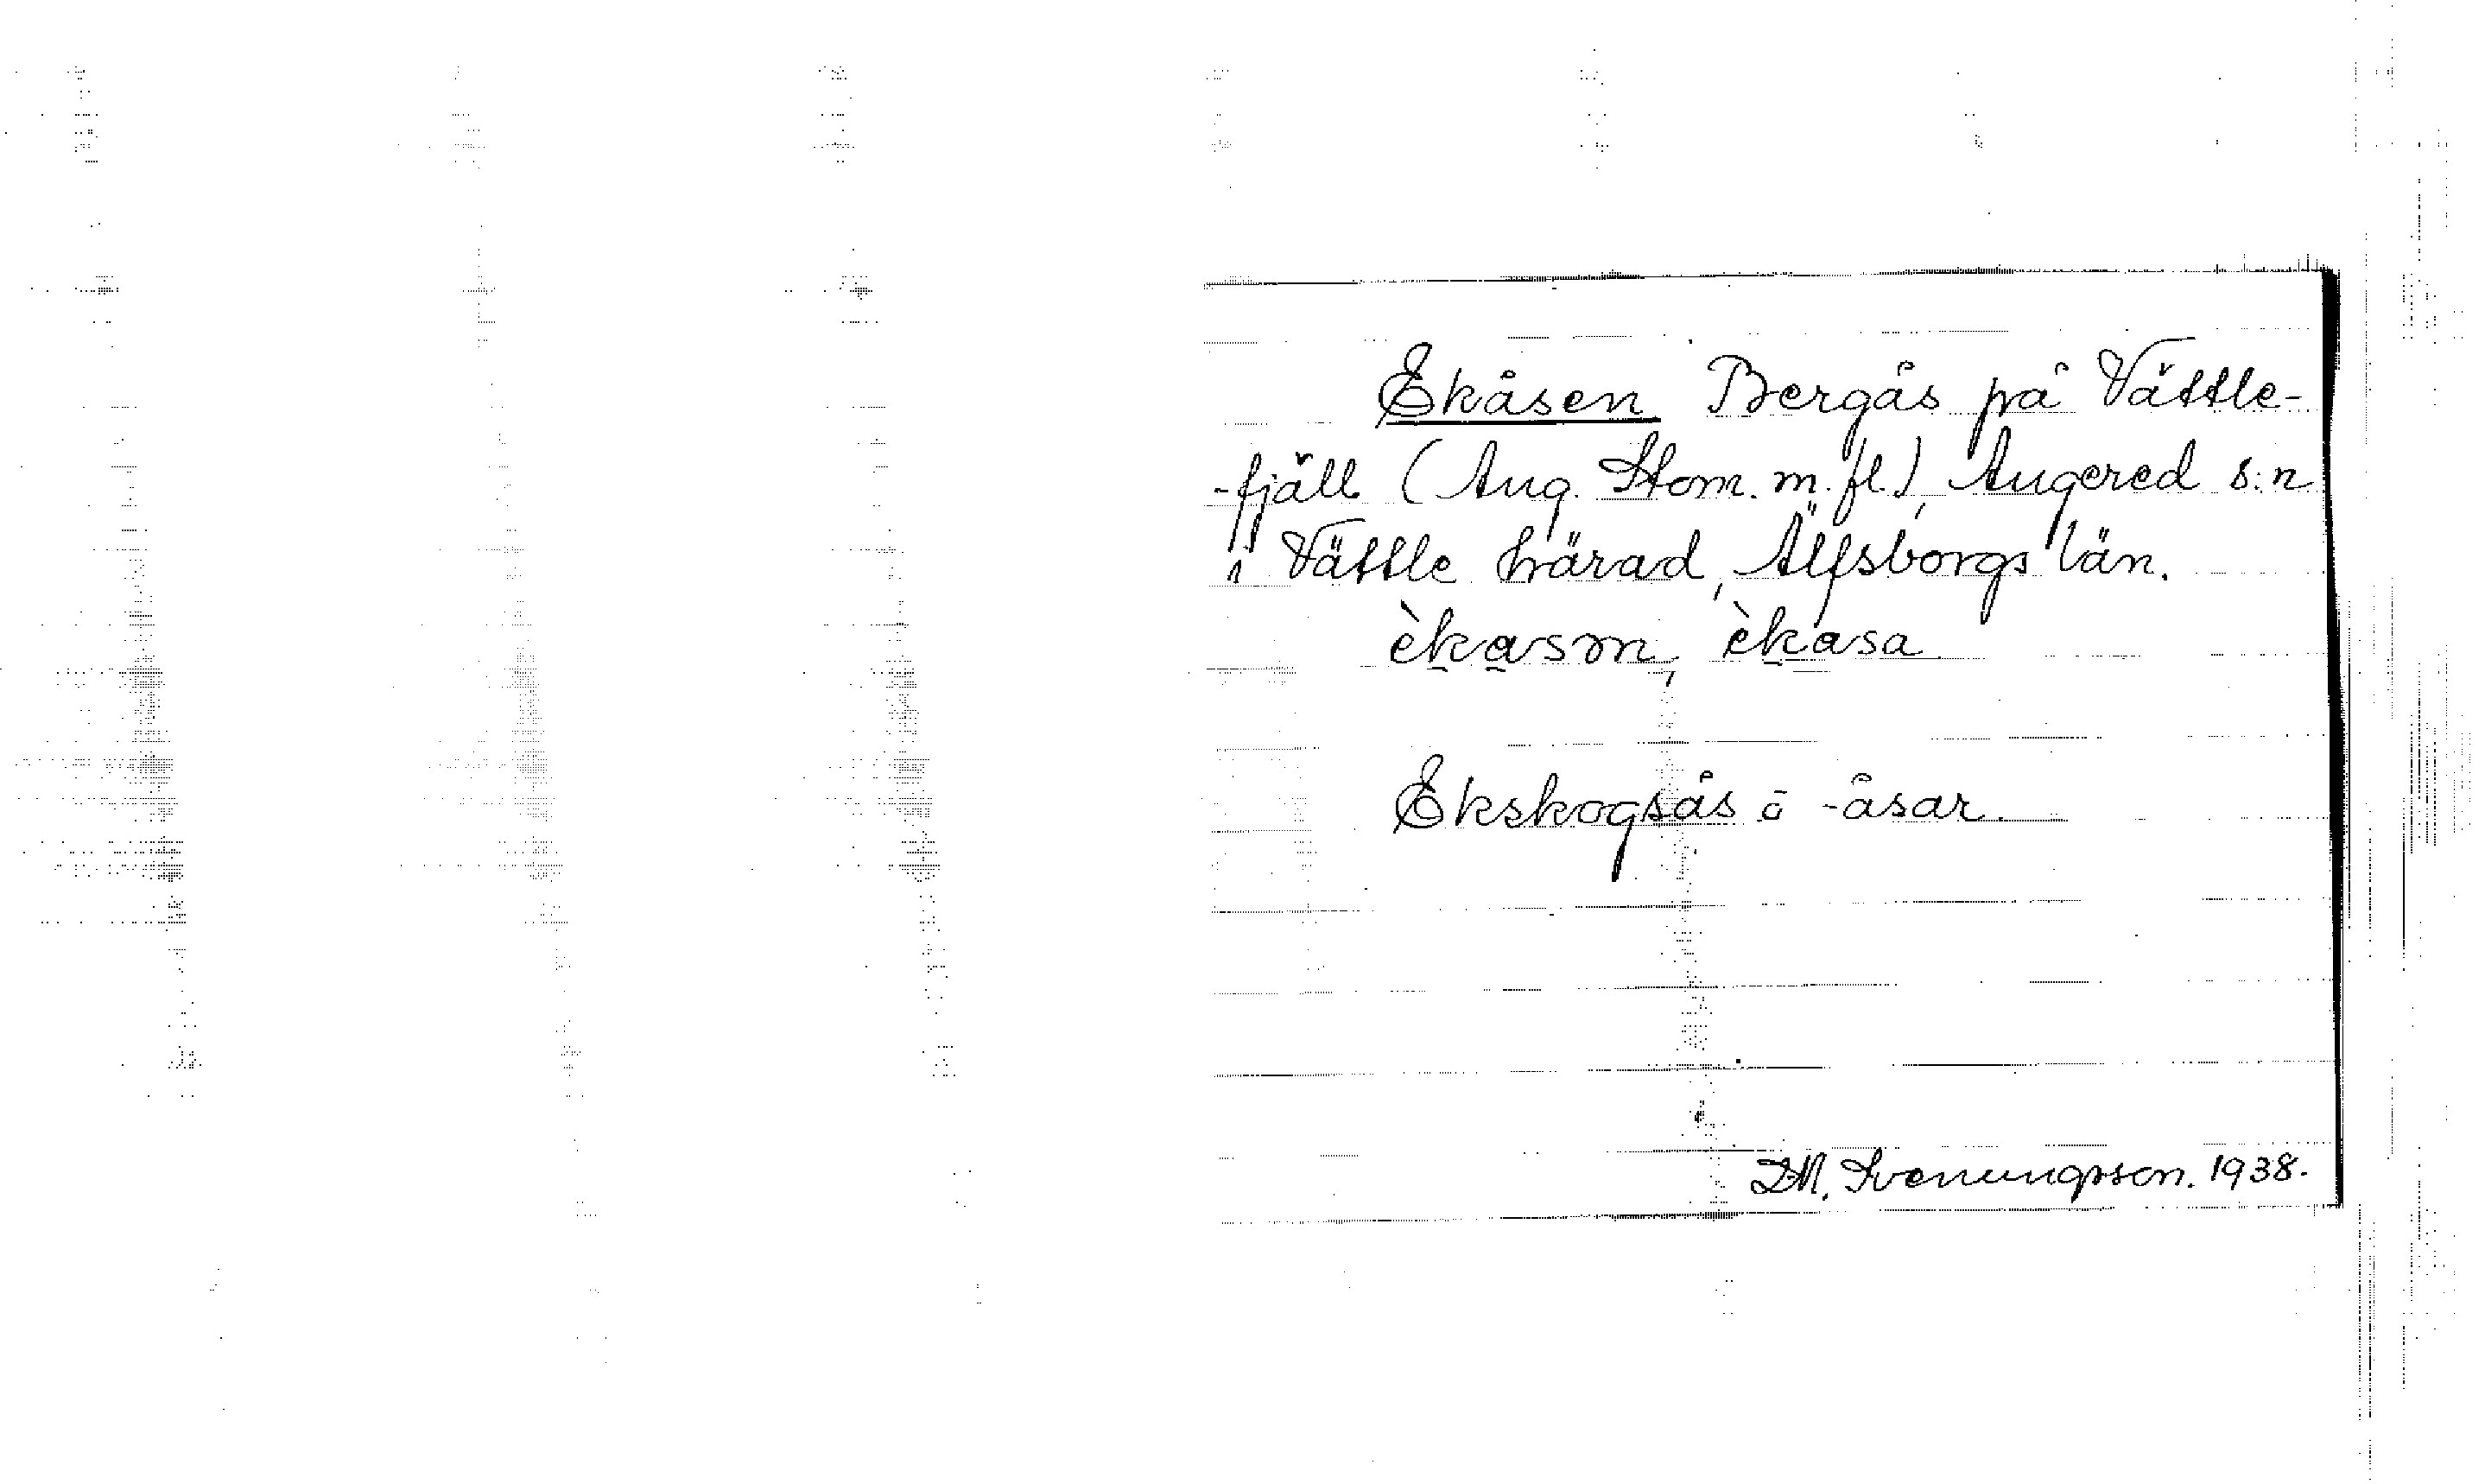 Ekåsen Bergås på Vättle-
-fjäll (Ang. Stom. m. fl.), Angered s:n
i Vättle härad, Älfsborgs län.
èkasən, èkasa
Ekskogsås o -åsar.
D.M. Svenungsson. 1938.